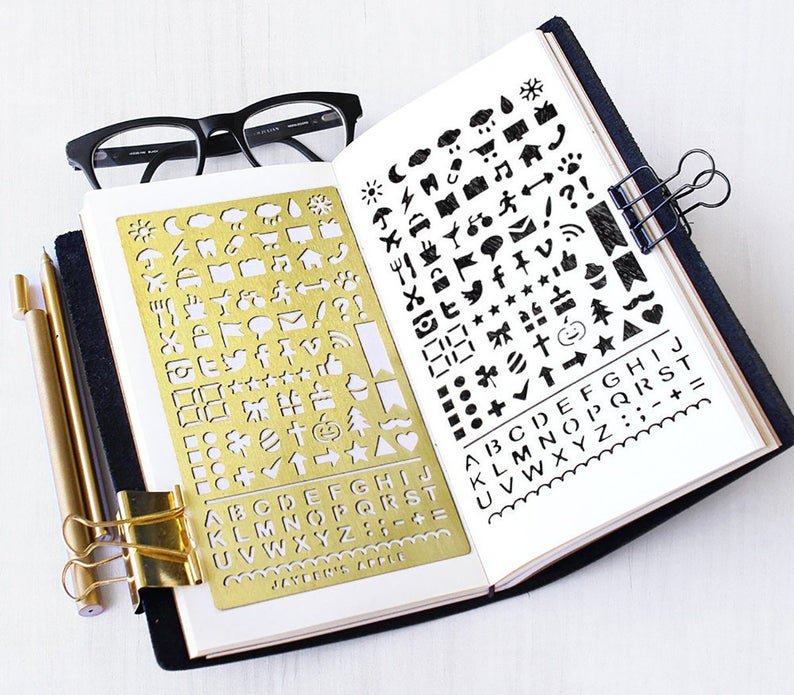 JULIAN
BLACK
!?
ABCDEFGHIJ
KLMNOPQRST
UVWXYZ:;-+=
JAYDEN'S APPLE
?!
ABCDEFGHIJ
KLMNOPQRST
UVWXYZ:;-+=